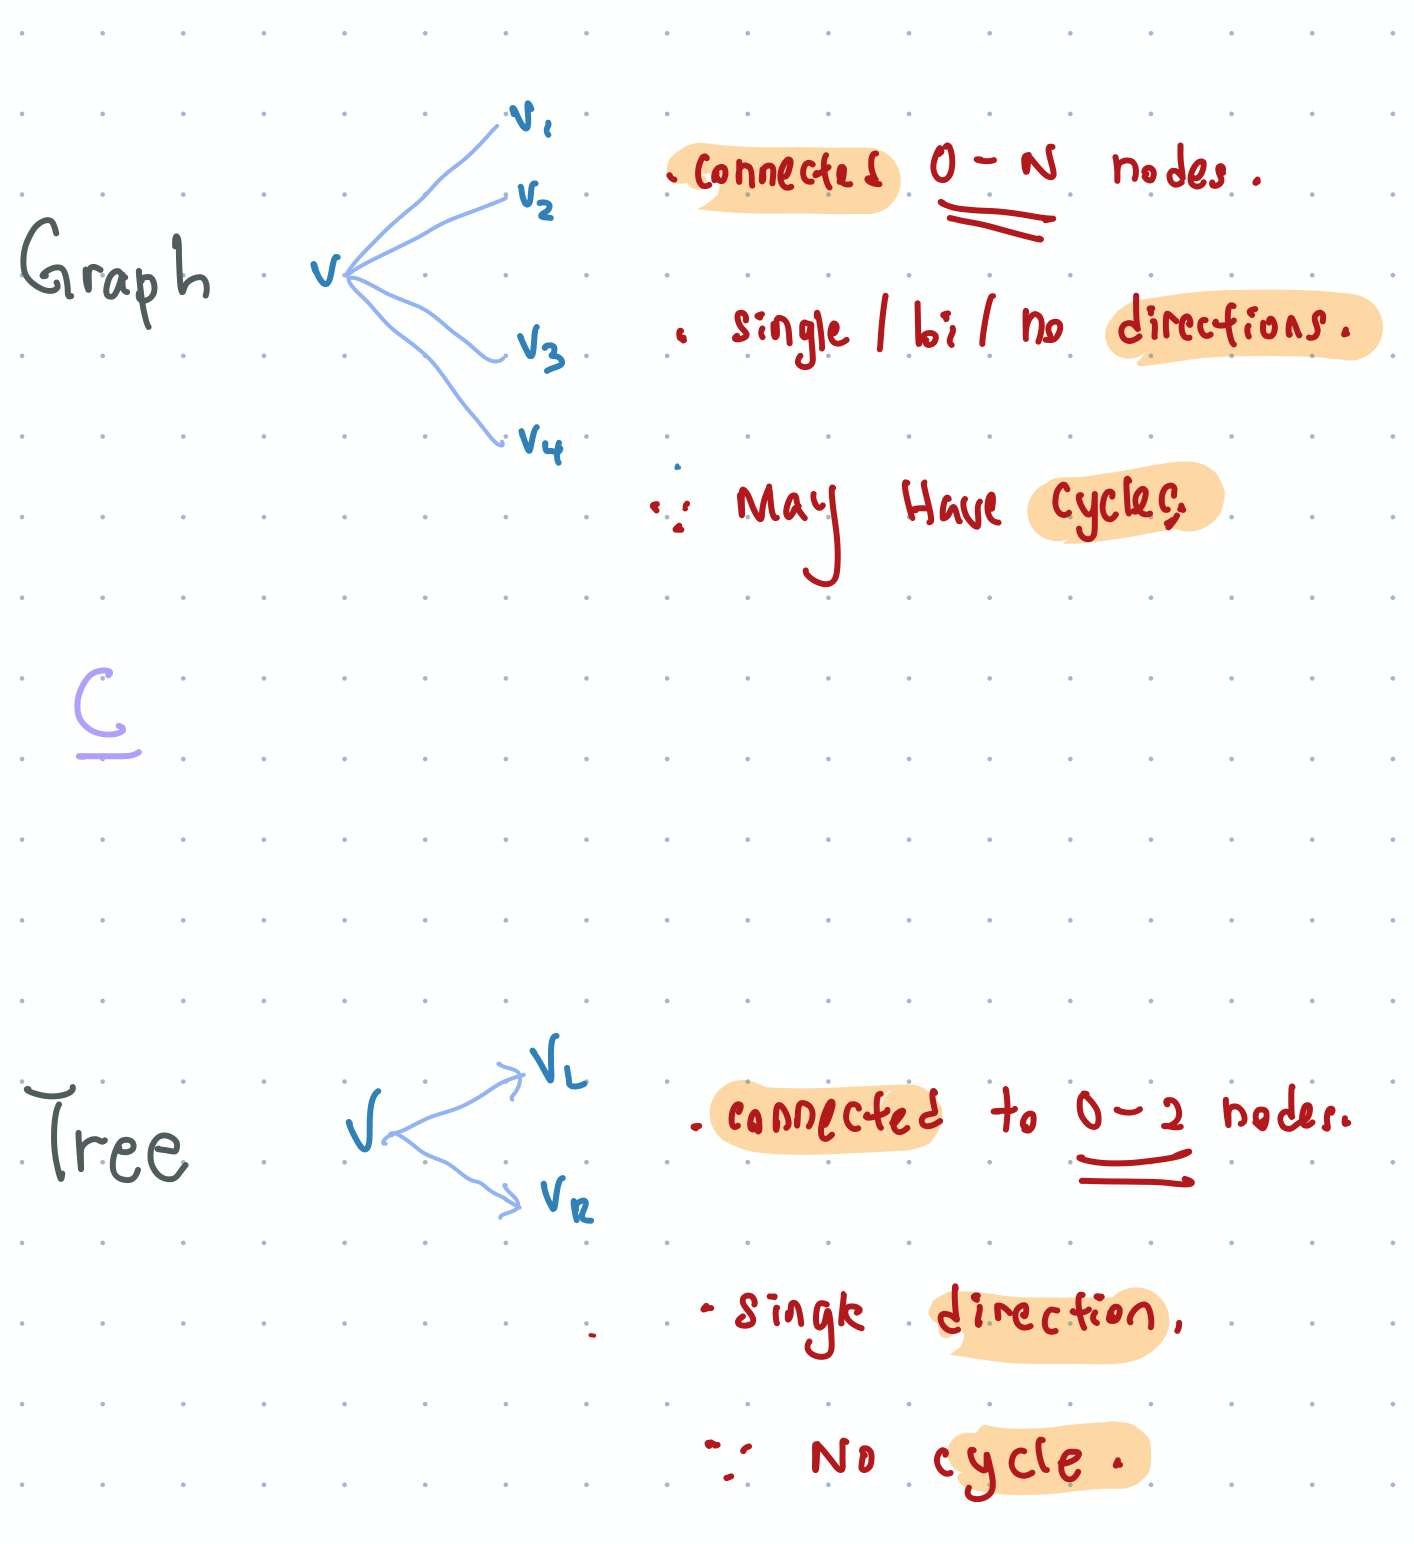 Graph
V
V1
V2
V3
V4
. connected 0 - N nodes.
. single / bi / no directions.
∵ May Have cycles.
C
Tree
V
VL
VR
. connected to 0 - 2 nodes.
. single direction.
∵ No cycle.